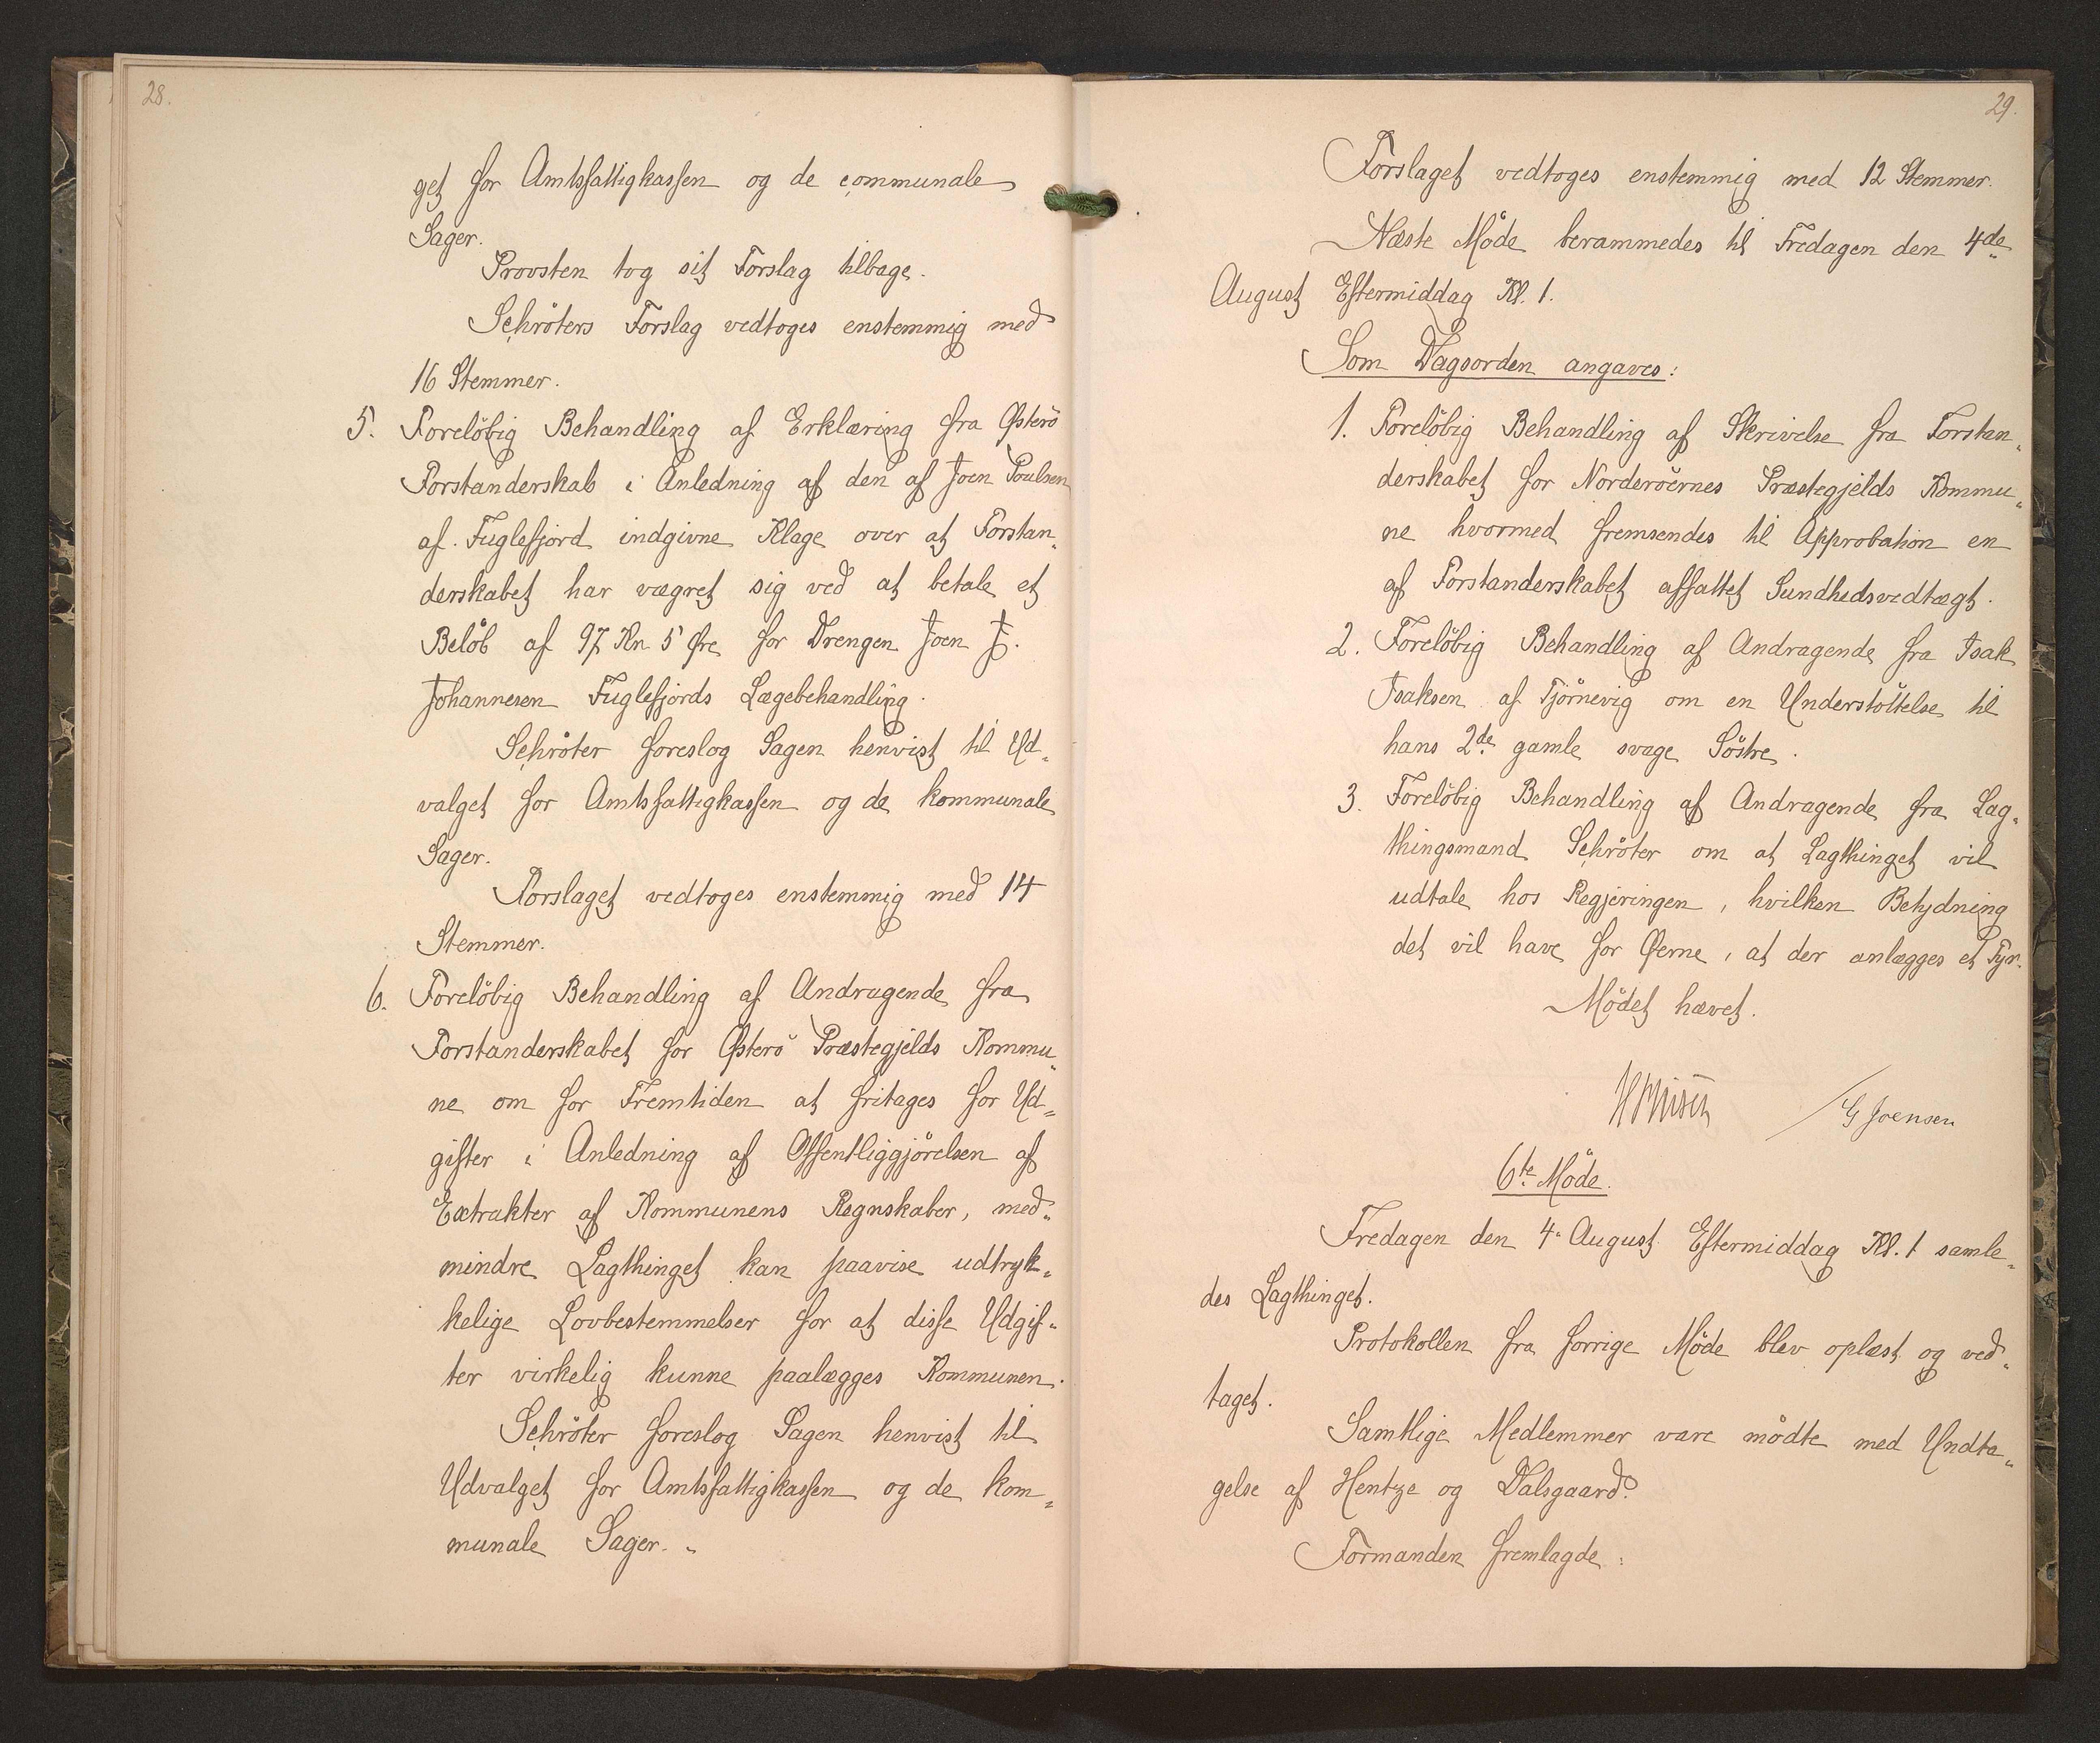 28.
get for Amtsfattigkassen og de communale
Sager.
Provsten tog sit Forslag tilbage.
Schröters Forslag vedtoges enstemmig med
16 Stemmer.
5. Foreløbig Behandling af Erklæring fra Østerö
Forstanderskab i Anledning af den af Joen Poulsen
af Fuglefjord indgivne Klage over at Forstan-
derskabet har vægret sig ved at betale et
Beløb af 97 Kr 5 Øre for Drengen Joen J.
Johannesen Fuglefjords Lægebehandling.
Schröter foreslog Sagen henvist til Ud-
valget for Amtsfattigkassen og de kommunale
Sager.
Forslaget vedtoges enstemmig med 14
Stemmer.
6. Foreløbig Behandling af Andragende fra
Forstanderskabet for Østerö Præstegjelds Kommu-
ne om for Fremtiden at fritages for Ud-
gifter i Anledning af Offentliggjörelsen af
Extrakter af Kommunens Regnskaber, med-
mindre Lagthinget kan paavise udtryk-
kelige Lovbestemmelser for at disse Udgif-
ter virkelig kunne paalægges Kommunen.
Schröter foreslog Sagen henvist til
Udvalget for Amtsfattigkassen og de kom-
munale Sager.
29.
Forslaget vedtoges enstemmig med 12 Stemmer.
Næste Möde berammedes til Fredagen den 4de
August Eftermiddag Kl. 1.
Som Dagsorden angaves:
1. Foreløbig Behandling af Skrivelse fra Forstan-
derskabet for Norderöernes Præstegjelds Kommu-
ne hvormed fremsendes til Approbation en
af Forstanderskabet affattet Sundhedsvedtægt.
2. Foreløbig Behandling af Andragende fra Isak
Isaksen af Tjörnevig om en Understöttelse til
hans 2de gamle svage Söstre.
3. Foreløbig Behandling af Andragende fra Lag-
thingsmand Schröter om at Lagthinget vil
udtale hos Regjeringen, hvilken Betydning
det vil have for Øerne, at der anlægges et Fyr.
Mödet hævet.
G Joensen
6te Möde.
Fredagen den 4. August Eftermiddag Kl. 1 samle-
des Lagthinget.
Protokollen fra forrige Möde blev oplæst og ved-
taget.
Samtlige Medlemmer vare mödte med Undta-
gelse af Hentze og Dalsgaard.
Formanden fremlagde: